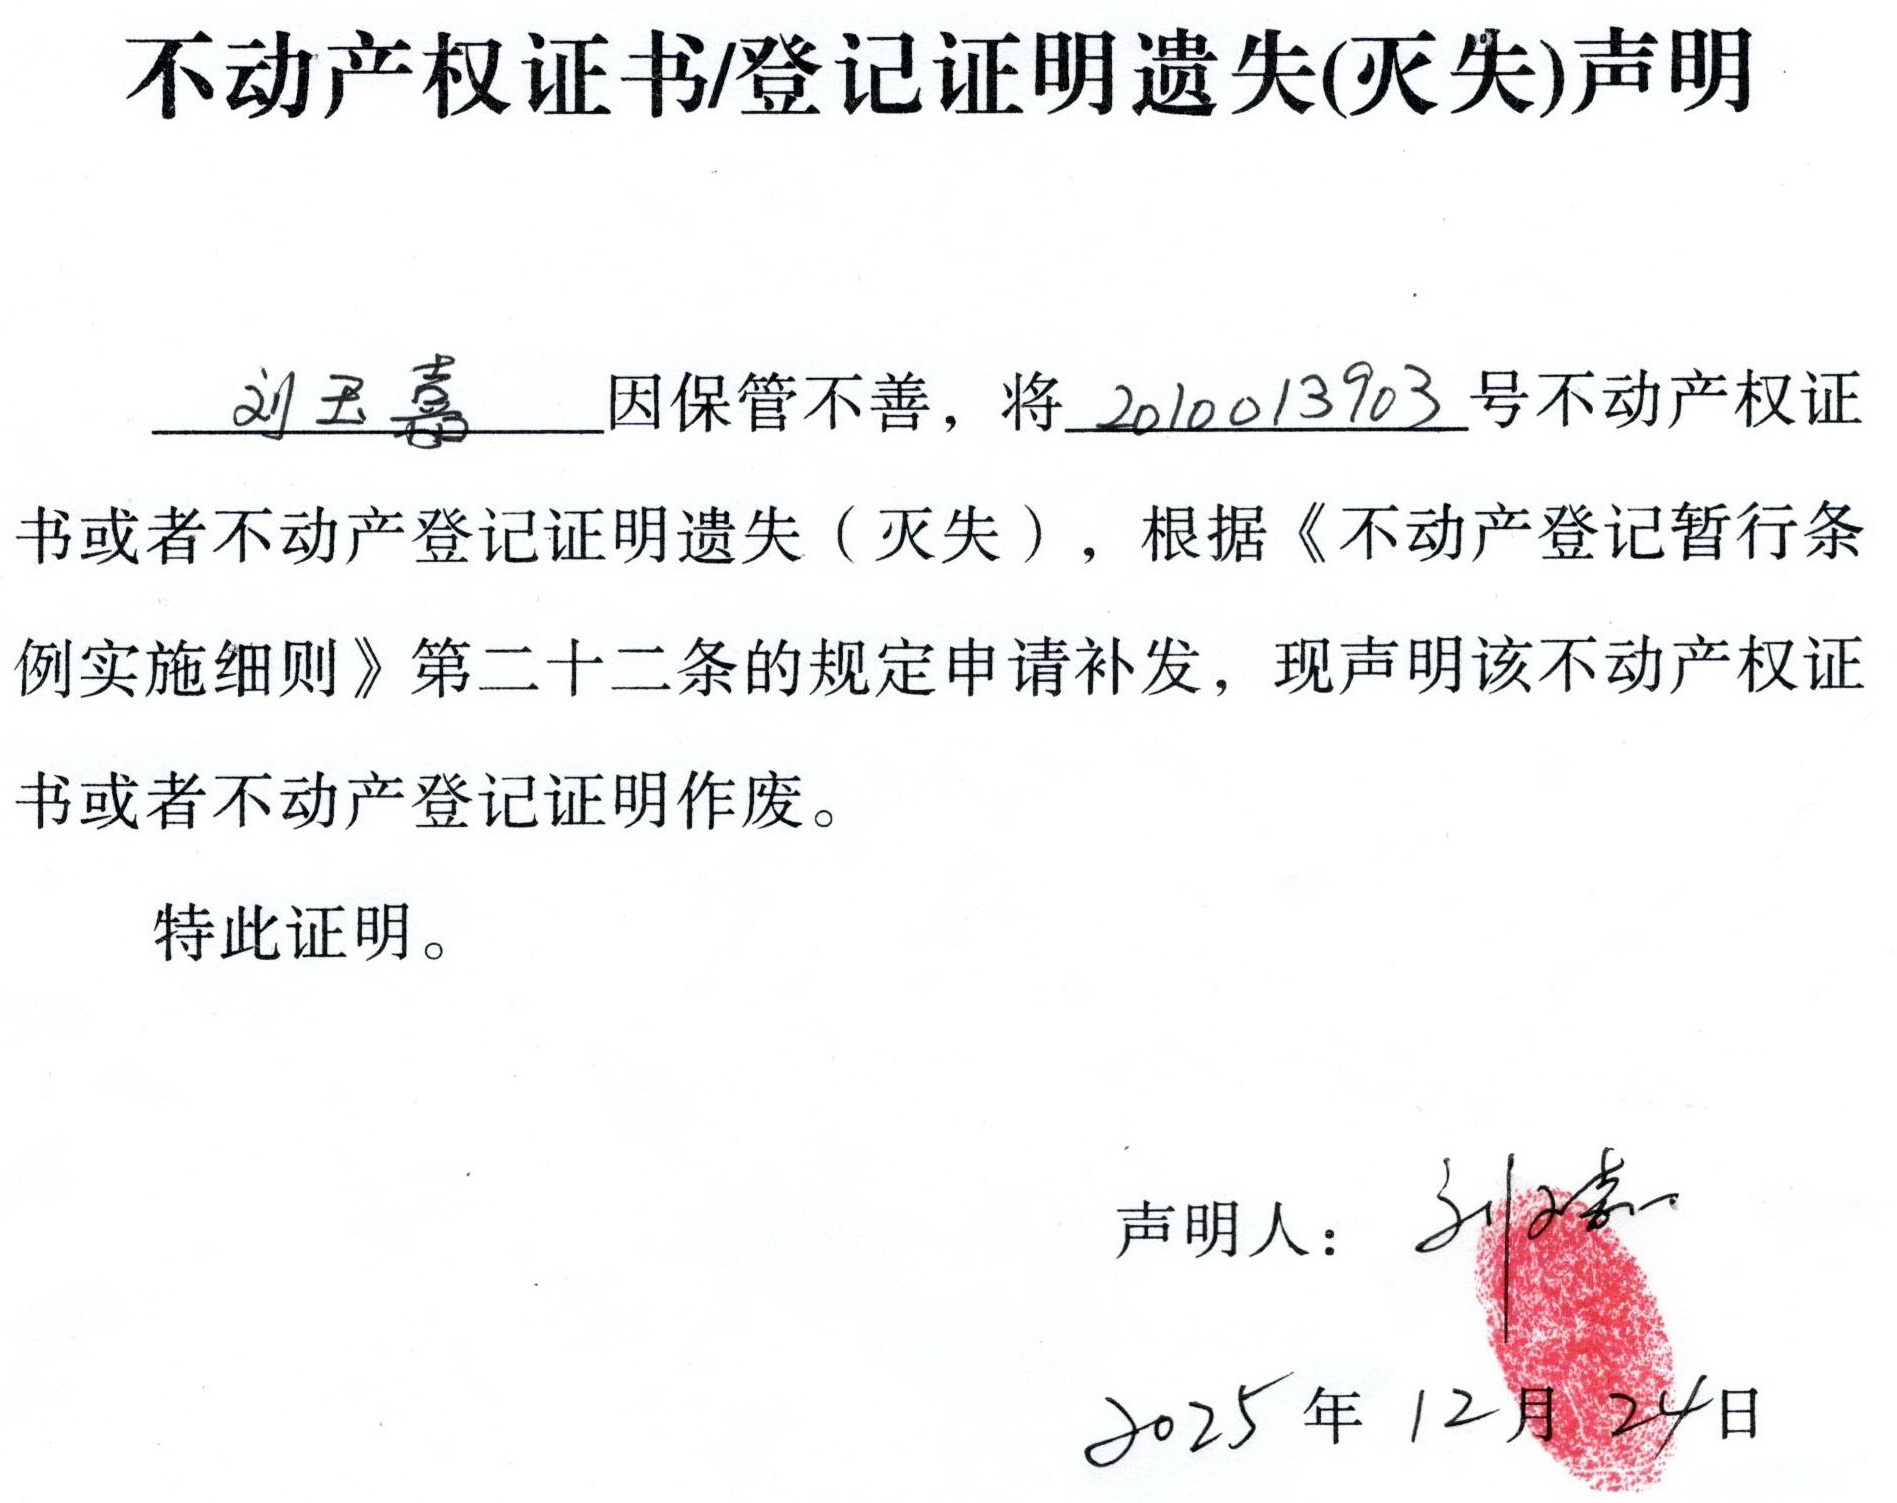 不动产权证书/登记证明遗失(灭失)声明
刘玉嘉因保管不善，将2010013903号不动产权证
书或者不动产登记证明遗失（灭失），根据《不动产登记暂行条
例实施细则》第二十二条的规定申请补发，现声明该不动产权证
书或者不动产登记证明作废。
特此证明。
声明人：刘玉嘉
2025年12月24日